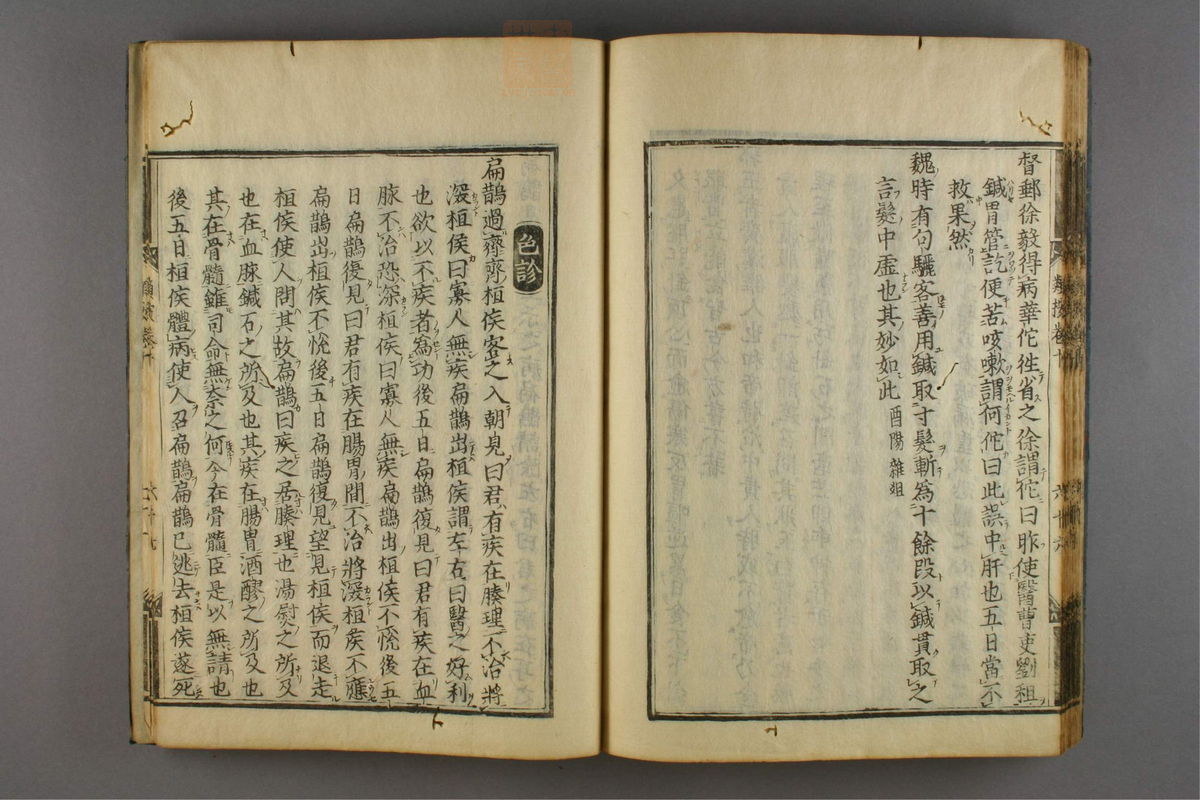 督郵徐毅得病華佗往省之徐謂佗曰昨使醫曹吏劉租
鍼胃管訖便苦咳嗽謂何佗曰此誤中肝也五日當不
救果然
魏時有句驪客善用鍼取寸髮斬為十餘段以鍼貫取之
言髮中虛也其妙如此 酉陽雜俎
色診
扁鵲過齊齊桓侯客之入朝見曰君有疾在腠理不治將
深桓侯曰寡人無疾扁鵲出桓侯謂左右曰醫之好利
也欲以不疾者為功後五日扁鵲復見曰君有疾在血
脉不治恐深桓侯曰寡人無疾扁鵲出桓侯不悅後五
日扁鵲復見曰君有疾在腸胃間不治將深桓侯不應
扁鵲出桓侯不悅後五日扁鵲復見望見桓侯而退走
桓侯使人問其故扁鵲曰疾之居腠理也湯熨之所及
也在血脉鍼石之所及也其疾在腸胃酒醪之所及也
其在骨髓雖司命無奈之何今在骨髓臣是以無請也
後五日桓侯體病使人召扁鵲扁鵲已逃去桓侯遂死